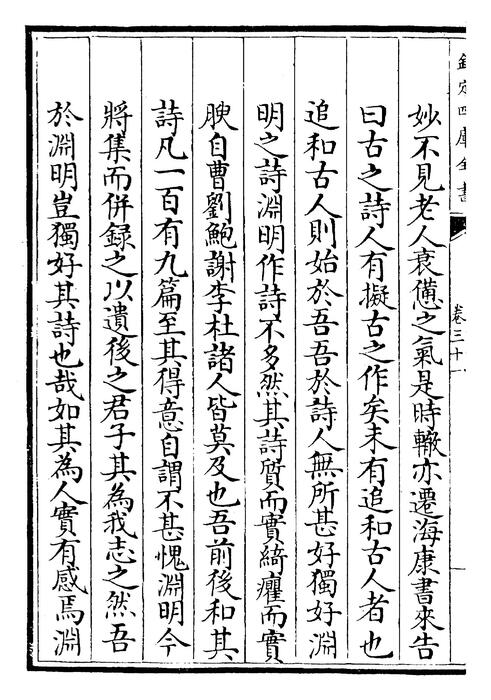 欽定四庫全書
卷三十一
妙不見老人衰憊之氣是時轍亦遷海康書來告
曰古之詩人有擬古之作矣未有追和古人者也
追和古人則始於吾吾於詩人無所甚好獨好淵
明之詩淵明作詩不多然其詩質而實綺癯而實
腴自曹劉鮑謝李杜諸人皆莫及也吾前後和其
詩凡一百有九篇至其得意自謂不甚愧淵明今
將集而併録之以遺後之君子其為我志之然吾
於淵明豈獨好其詩也哉如其為人實有感焉淵